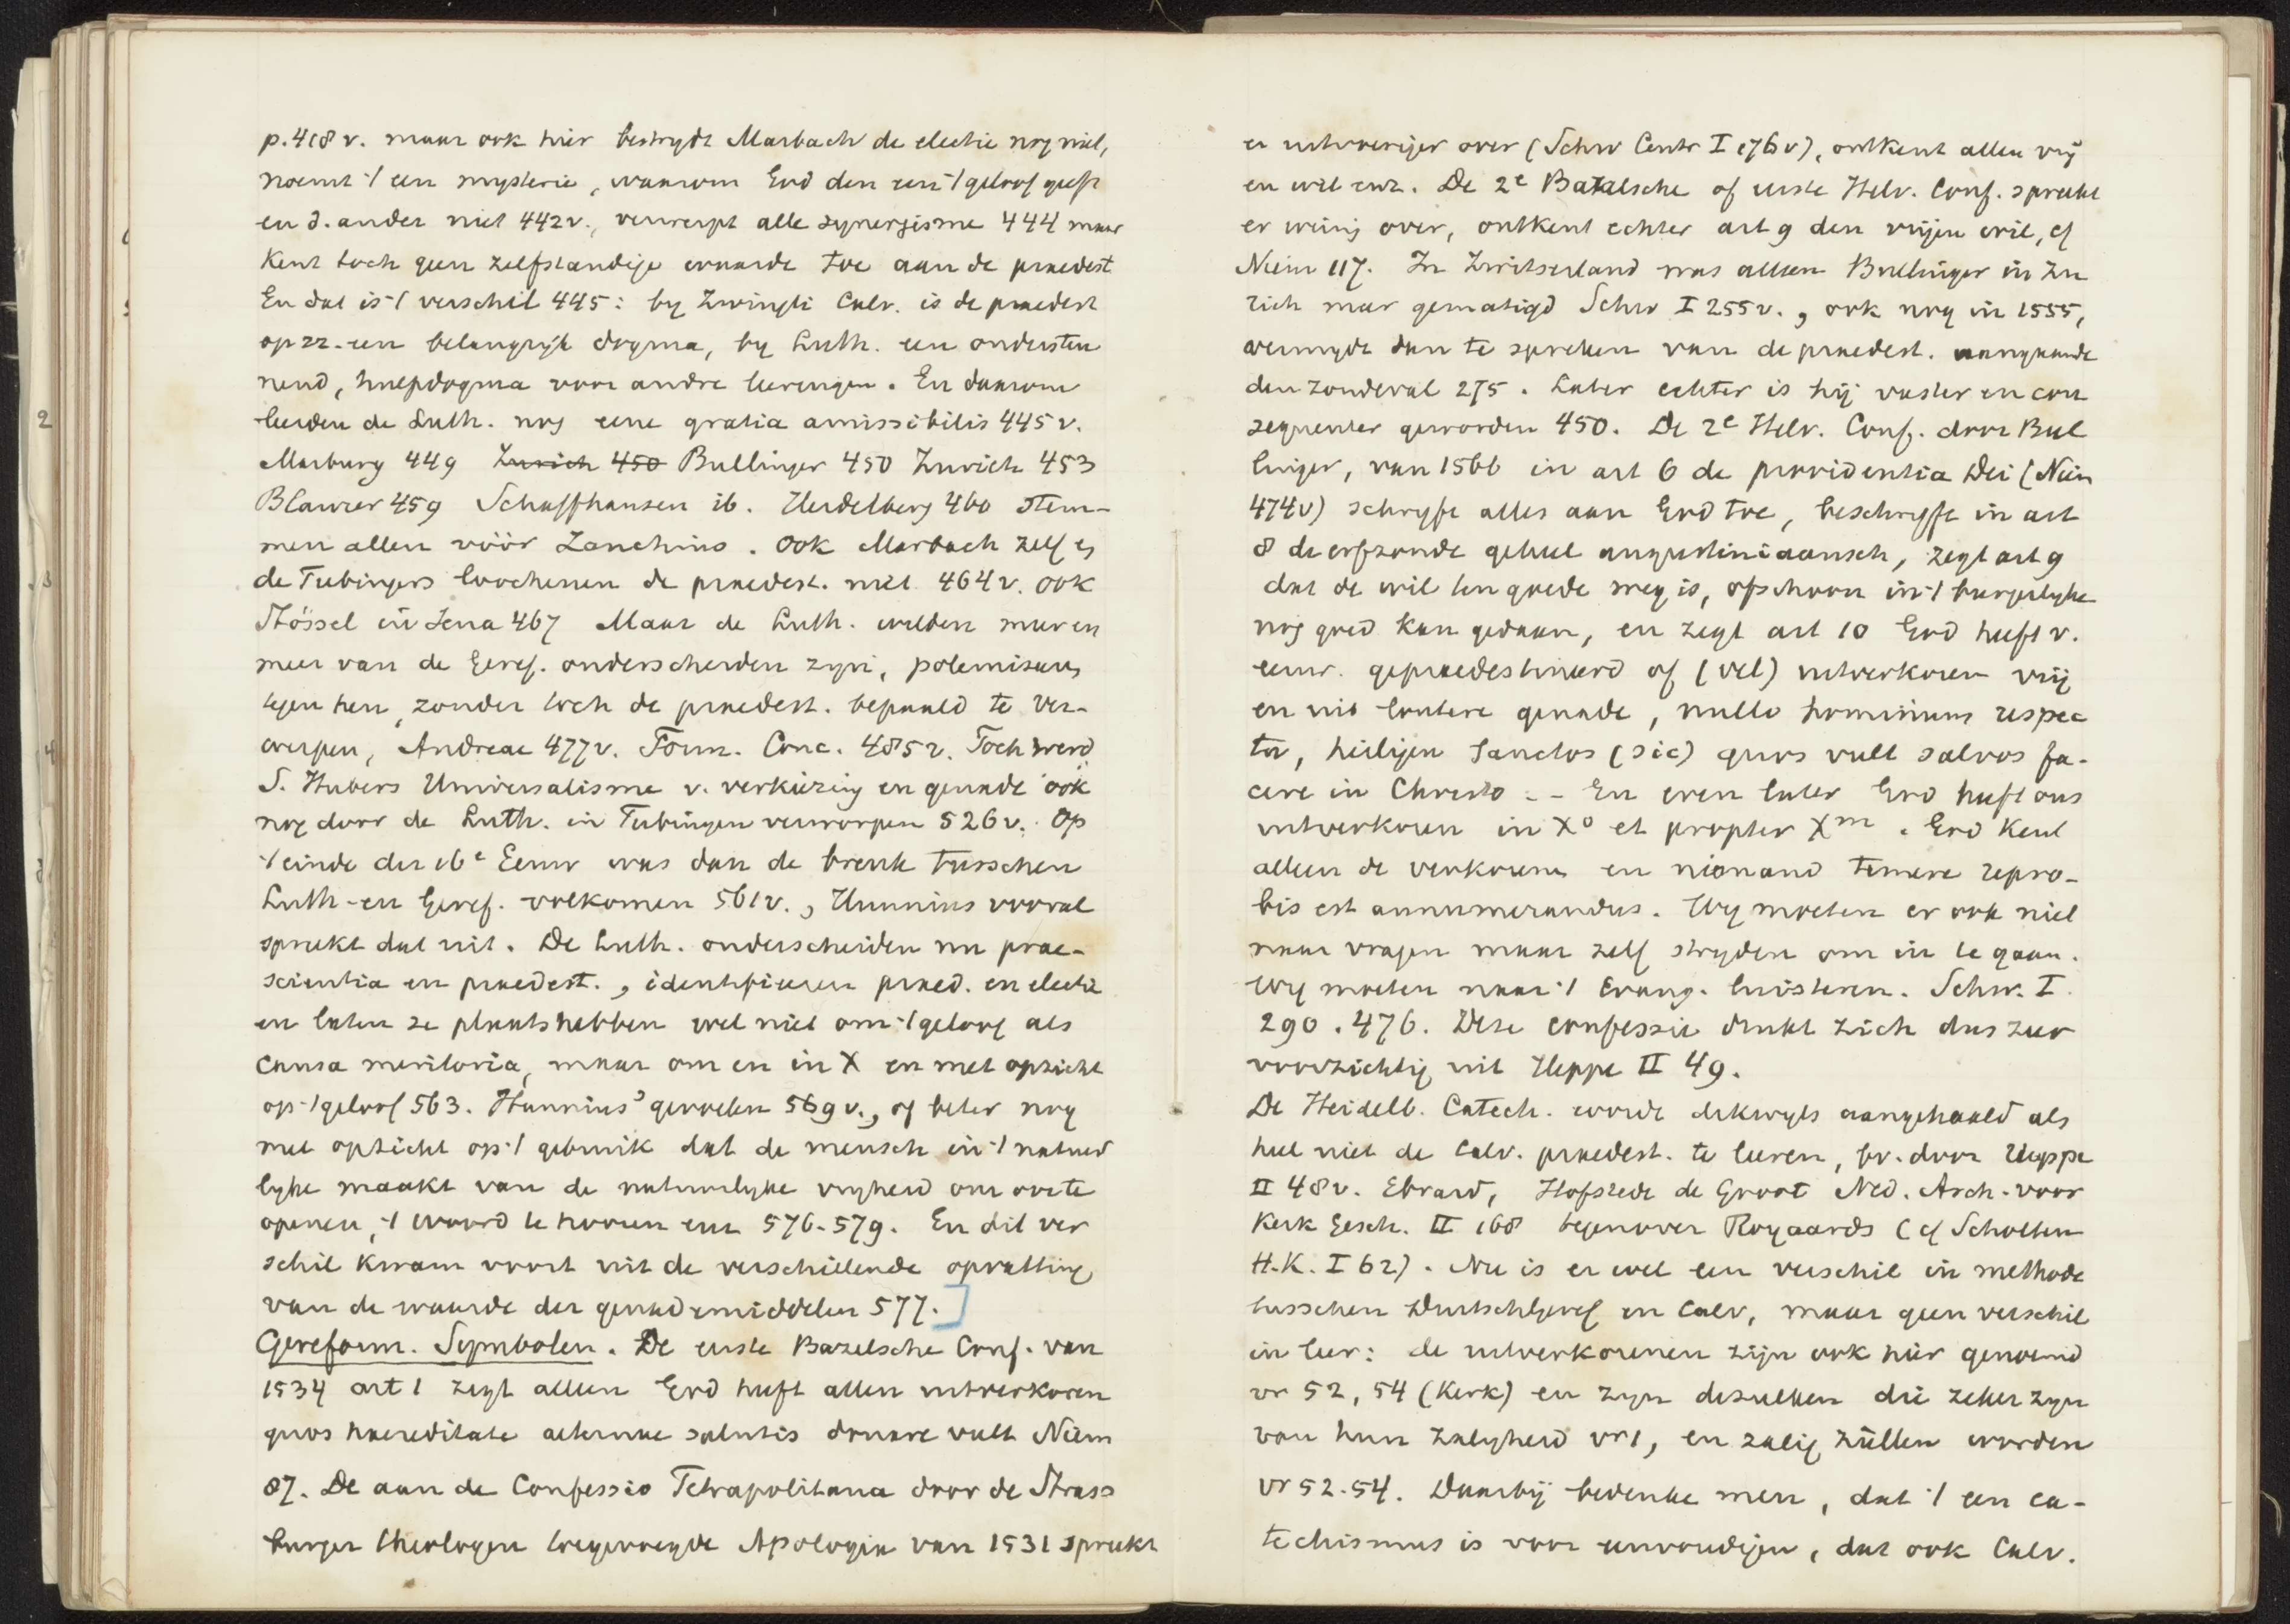 p. 418 v. maar ook hier bestrydt Marbach de electie nog niet,
noemt 't een mysterie, waarom God den een 't geloof geeft
en d. ander niet 442 v., verwerpt alle synergisme 444 maar
kent toch geen zelfstandige waarde toe aan de praedest
En dat is 't verschil 445: by Zwingli Calv. is de praedest
op zz. een belangryk dogma, by Luth. een ondersteu
nend, hulpdogma voor andre leeringen. En daarom
leerden de Luth. nog eene gratia amissibilis 445 v.
Marburg 449 Zurich 450 Bullinger 450 Zurich 453
Blaurer 459 Schaffhausen ib. Heidelberg 460 stem-
men allen vóór Zanchius. Ook Marbach zelf ej
de Tubingers loochenen de praedest. niet 464 v. ook
Stössel in Jena 467 Maar de Luth. wilden meer en
meer van de Geref. onderscheiden zyn, polemiseeren
tegen hen, zonder toch de praedest. bepaald te ver-
werpen, Andreae 477 v. Form. Conc. 485 v. Toch werd
S. Hubers Universalisme v. verkiezing en genade ook
nog door de Luth. in Tubingen verworpen 526 v. Op
't einde der 16e Eeuw was dan de breuk tusschen
Luth- en Geref. volkomen 561 v., Hunnius vooral
spreekt dat uit. De Luth. onderscheiden nu prae-
scientia en praedest., identificeeren praed. en electie
en laten ze plaats hebben wel niet om 't geloof als
causa meritoria, maar om en in X en met opzicht
op 't geloof 563. Hunnius' gevoelen 569 v., of beter nog
met opzicht op 't gebruik dat de mensch in 't natuur
lyke maakt van de natuurlyke vryheid om oor te
openen, 't woord te hooren enz 576-579. En dit ver
schil kwam voort uit de verschillende opvatting
van de waarde der genademiddelen 577.]
Gereform. Symbolen. De eerste Bazelsche Conf. van
1534 art 1 zegt alleen God heeft allen uitverkoren
quos haereditate aeternae salutis donare vult Niem
87. De aan de Confessio Tetrapolitana door de Strass
burger theologen toegevoegde Apologie van 1531 spreekt
er uitvoeriger over (Schw Centr I 176 v), ontkent allen vrij
en wil enz. De 2e Bazelsche of eerste Helv. Conf. spreekt
er weinig over, ontkent echter art 9 den vrijen wil, cf
Niem 117. In Zwitserland was alleen Bullinger in Zu
rich meer gematigd Schw I 255 v., ook nog in 1555,
vermydt dan te spreken van de praedest. aangaande
den zondeval 275. Later echter is hij vaster en con
sequenter geworden 450. De 2e Helv. Conf. door Bul
linger, van 1566 in art 6 de providentia Dei (Niem
474 v) schryft alles aan God toe, beschryft in art
8 de erfzonde geheel augustiniaansch, zegt art 9
dat de wil ten goede weg is, ofschoon in 't burgerlyke
nog goed kan gedaan, en zegt art 10 God heeft v.
eeuw. gepraedestineerd of (vel) uitverkoren vrij
en uit loutere genade, nullo hominum respec
tu, heiligen Sanctos (sic) quos vult salvos fa-
cere in Christo -- En even later God heeft ons
uitverkoren in Xo et propter Xm. God kent
alleen de verkorenen en niemand temere repro-
bis est annumerandus. Wy moeten er ook niet
naar vragen maar zelf stryden om in te gaan.
Wy moeten naar 't Evang. luisteren. Schw. I
290. 476. Deze confessie drukt zich dus zeer
voorzichtig uit Heppe II 49.
De Heidelb. Catech. wordt dikwyls aangehaald als
heel niet de Calv. praedest. te leeren, bv. door Heppe
II 48 v. Ebrard, Hofstede de Groot Ned. Arch. voor
Kerk Gesch. II 168 tegenover Royaards (cf Scholten
H.K. I 62). Nu is er wel een verschil in methode
tusschen Duitschgeref en Calv, maar geen verschil
in leer: de uitverkorenen zijn ook hier genoemd
vr 52, 54 (Kerk) en zyn dezulken die zeker zyn
van hun zaligheid vr 1, en zalig zullen worden
vr 52. 54. Daarbij bedenke men, dat 't een ca-
techismus is voor eenvoudigen, dat ook Calv.
2
3
4